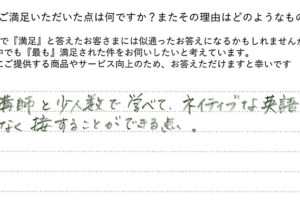 ご満足いただいた点は何ですか？またその理由はどのようなもの
で『満足』と答えたお客さまには似通ったお答えになるかもしれません
中でも『最も』満足された件をお伺いしたいと考えています。
にご提供する商品やサービス向上のため、お答えただけますと幸いです
講師と少人数で学べて、ネイティブな英語
なく接することができる点。